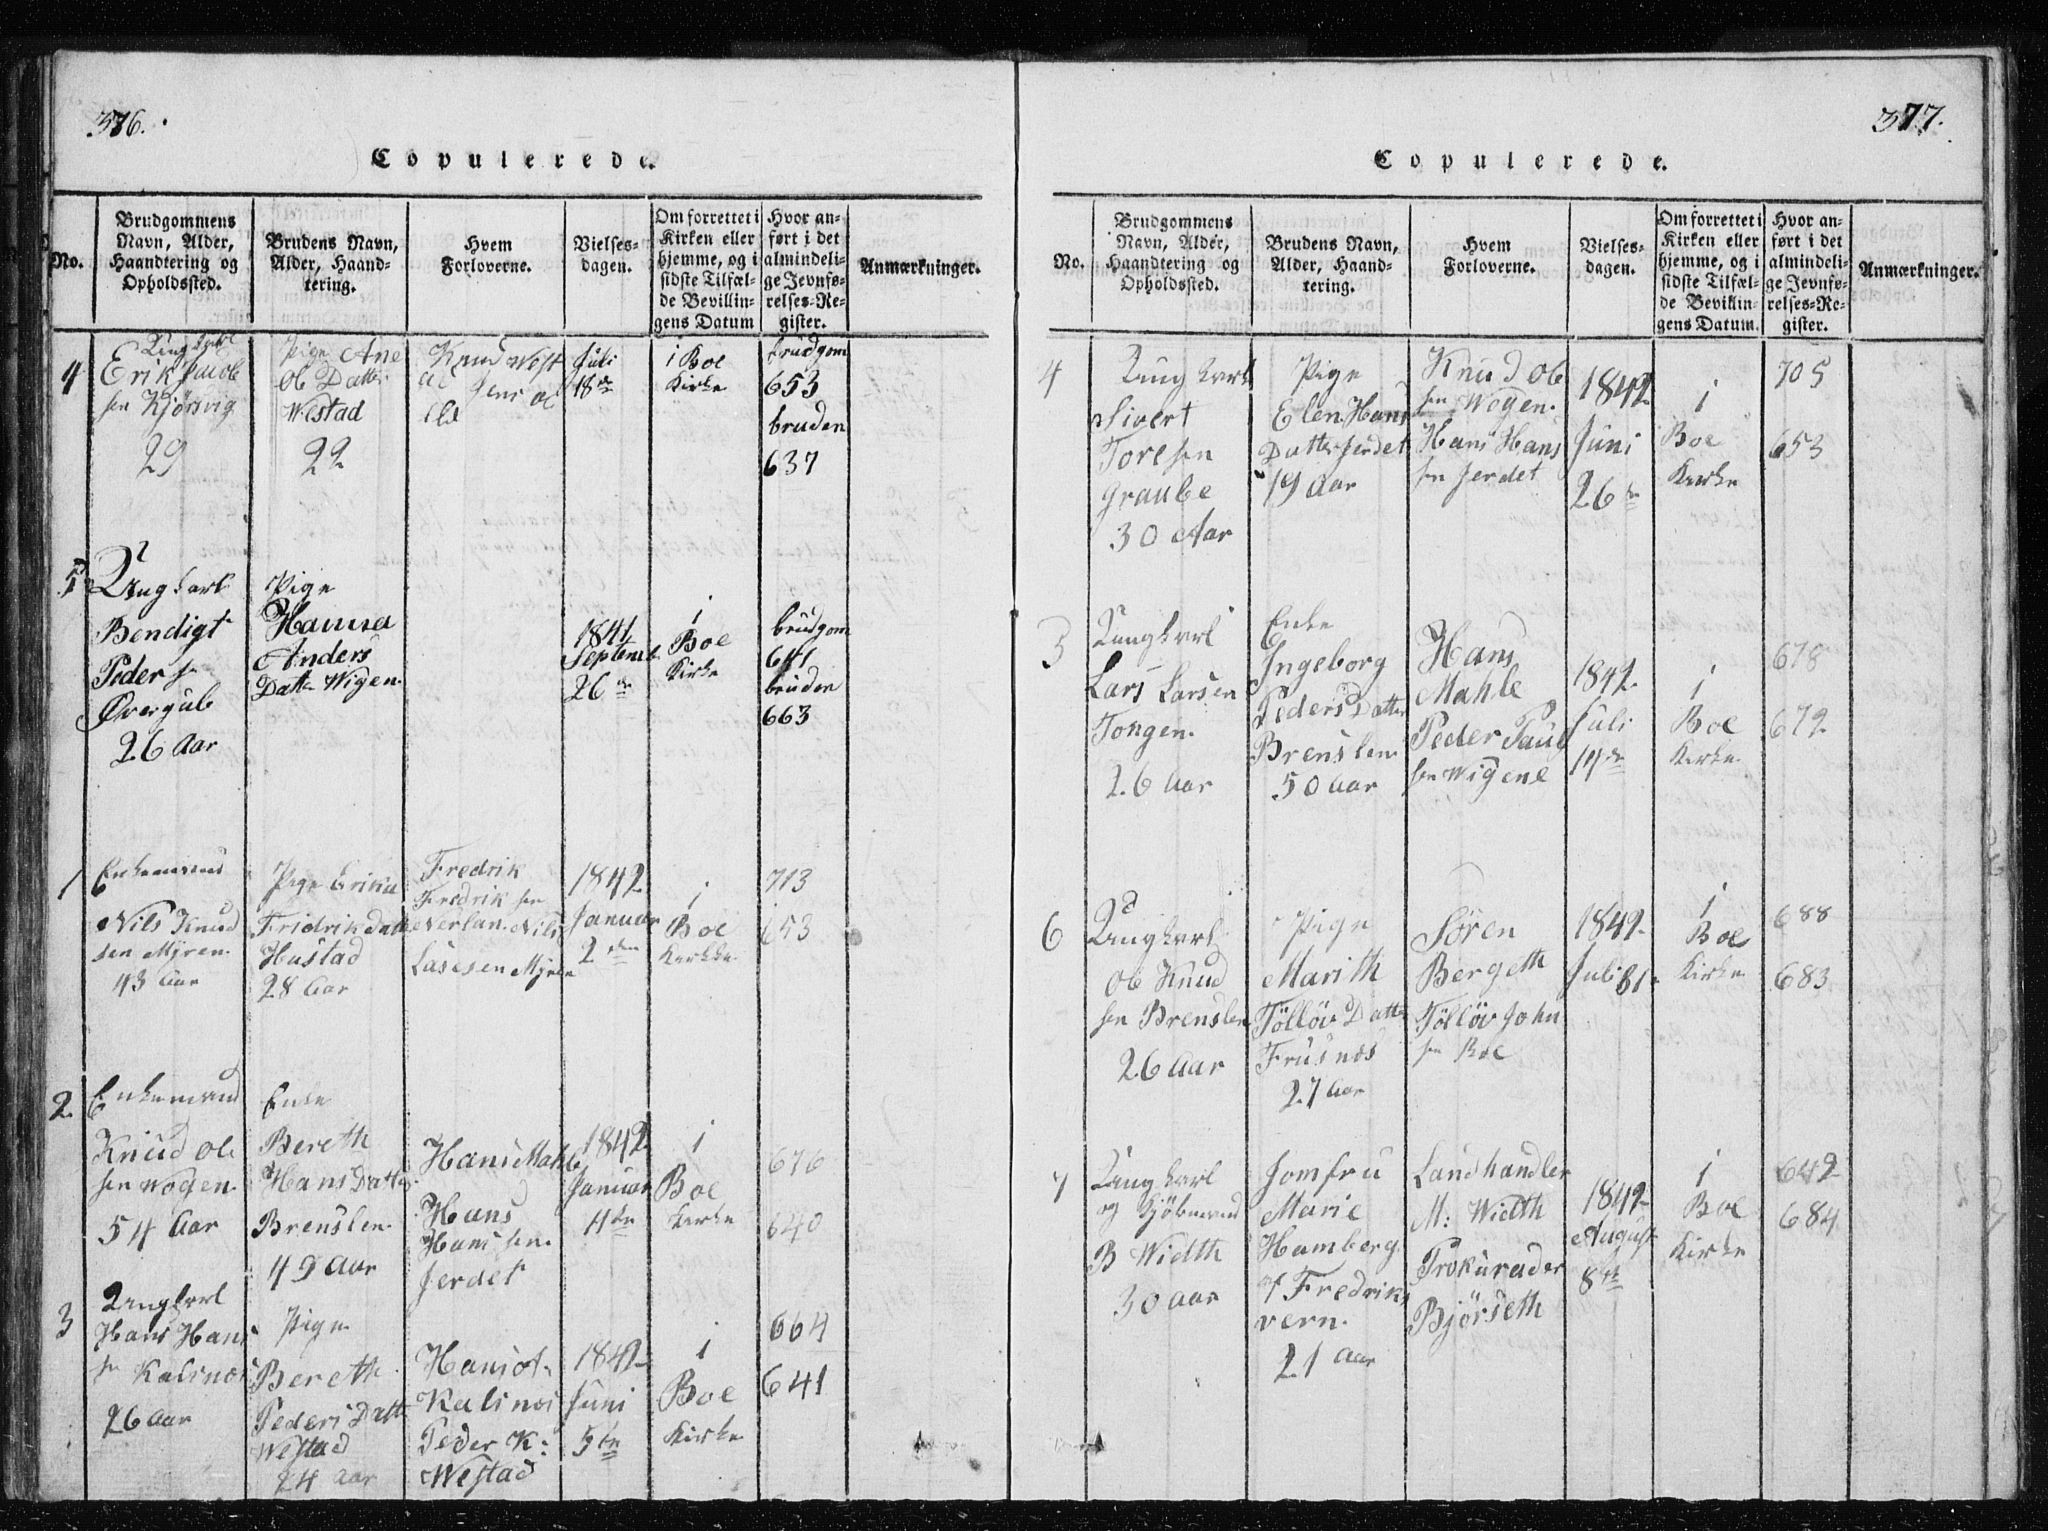 376.
Copulerede.
No.
Brudgommens
Navn, Alder,
Haandtering og
Opholdssted.
Brudens Navn,
Alder, Haand-
tering.
Hvem
Forloverne.
Vielses-
dagen.
Om forrettet i
Kirken eller
hjemme, og i
sidste Tilfæl-
de Bevillin-
gens Datum
Hvor an-
ført i det
almindeli-
ge Jevnfø-
relses-Re-
gister.
Anmærkninger.
4
Ungkarl
Erik Jacob
sen Kjörsvig
29
Pige Ane
Ob Datter
Westad
22
Knud West
ad Jens
Juli
18de
i Boe
Kirke
brudgom
653
bruden
637
5
Ungkarl
Bendigt
Peder sn
Øvergub
26 Aar
Pige
Hanna
Anders
Datter Wigen
1841
Septemb
26de
i
Boe
Kirke
brudgom
641
bruden
663
1
Enkemand
Nils Knud
sen Myren
43 Aar
Pige Erika
Fridrik Datter
Hustad
28 Aar
Fredrik
Fredrik sen
Nerlan. Nils
Lasesen Myren
1842
Januar
2den
i
Boe
Kerkke
713
653
2
Enkemand
Knud Ole
sen Wogen
54 Aar
Enke
Bereth
Hans Datter
Brenslen
49 Aar
Hans Mahle
Hans
Hans sen
Jerdet
1842
Januar
11te
i
Boe
Kerke
676
640
3
Ungkarl
Hans Hans
sn Kalsnes
26 Aar
Pige
Bereth
Peders Datt
Westad
24 Aar
Hans
Kalsnes
Peder K:
Westad
1842
Juni
5te
i
Boe
Kirke
664
641
377.
Copulerede.
No.
Brudgommens
Navn, Alder,
Haandtering og
Opholdssted.
Brudens Navn,
Alder, Haand-
tering.
Hvem
Forloverne.
Vielses-
dagen.
Om forrettet i
Kirken eller
hjemme, og i
sidste Tilfæl-
de Bevillin-
gens Datum.
Hvor an-
ført i det
almindeli-
ge Jevnfø-
relses-Re-
gister.
Anmærkninger.
4
Ungkarl
Sivert
Toresen
Graube
30 Aar
Pige
Elen Hans
Datter Jerdet
19 Aar
Knud Ole
sen Wogen
Hans Hans
sen Jerdet
1842
Juni
26de
i
Boe
Kerke
705
653
5
Ungkarl
Lars Larsen
Tongen
26 Aar
Enke
Ingeborg
Peders Datter
Brenslen
50 Aar
Hans
Mahle
Peder Paul
sen Wigene
1842
Juli
14de
i
Boe
Kirke
678
672
6
Ungkarl
Ole Knud
sen Brenslen
26 Aar
Pige
Marith
Tölløv Datter
Frusnes
27 Aar
Søren
Bergeth
Tölløv John
sen Boe
1842
Juli 31
i
Boe
Kirke
688
683
7
Ungkarl
og Kjöbmand
B Width
30 aar
Jomfru
Marie
Hamberg
af Fredriks
vern.
21 Aar
Landhandler
M: Width
Prokurader
Bjørseth
1842
August
8de
i
Boe
Kirke
642
684